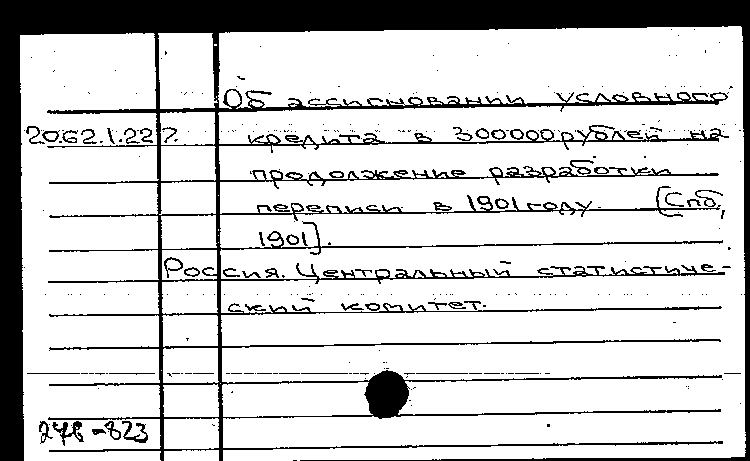 Об ассигновании условного
2062.1.227. кредита в 300000 рублей на
продолжение разработки
переписи в 1901 году. [Спб,
1901].
Россия. Центральный статистиче-
ский комитет.
246-823